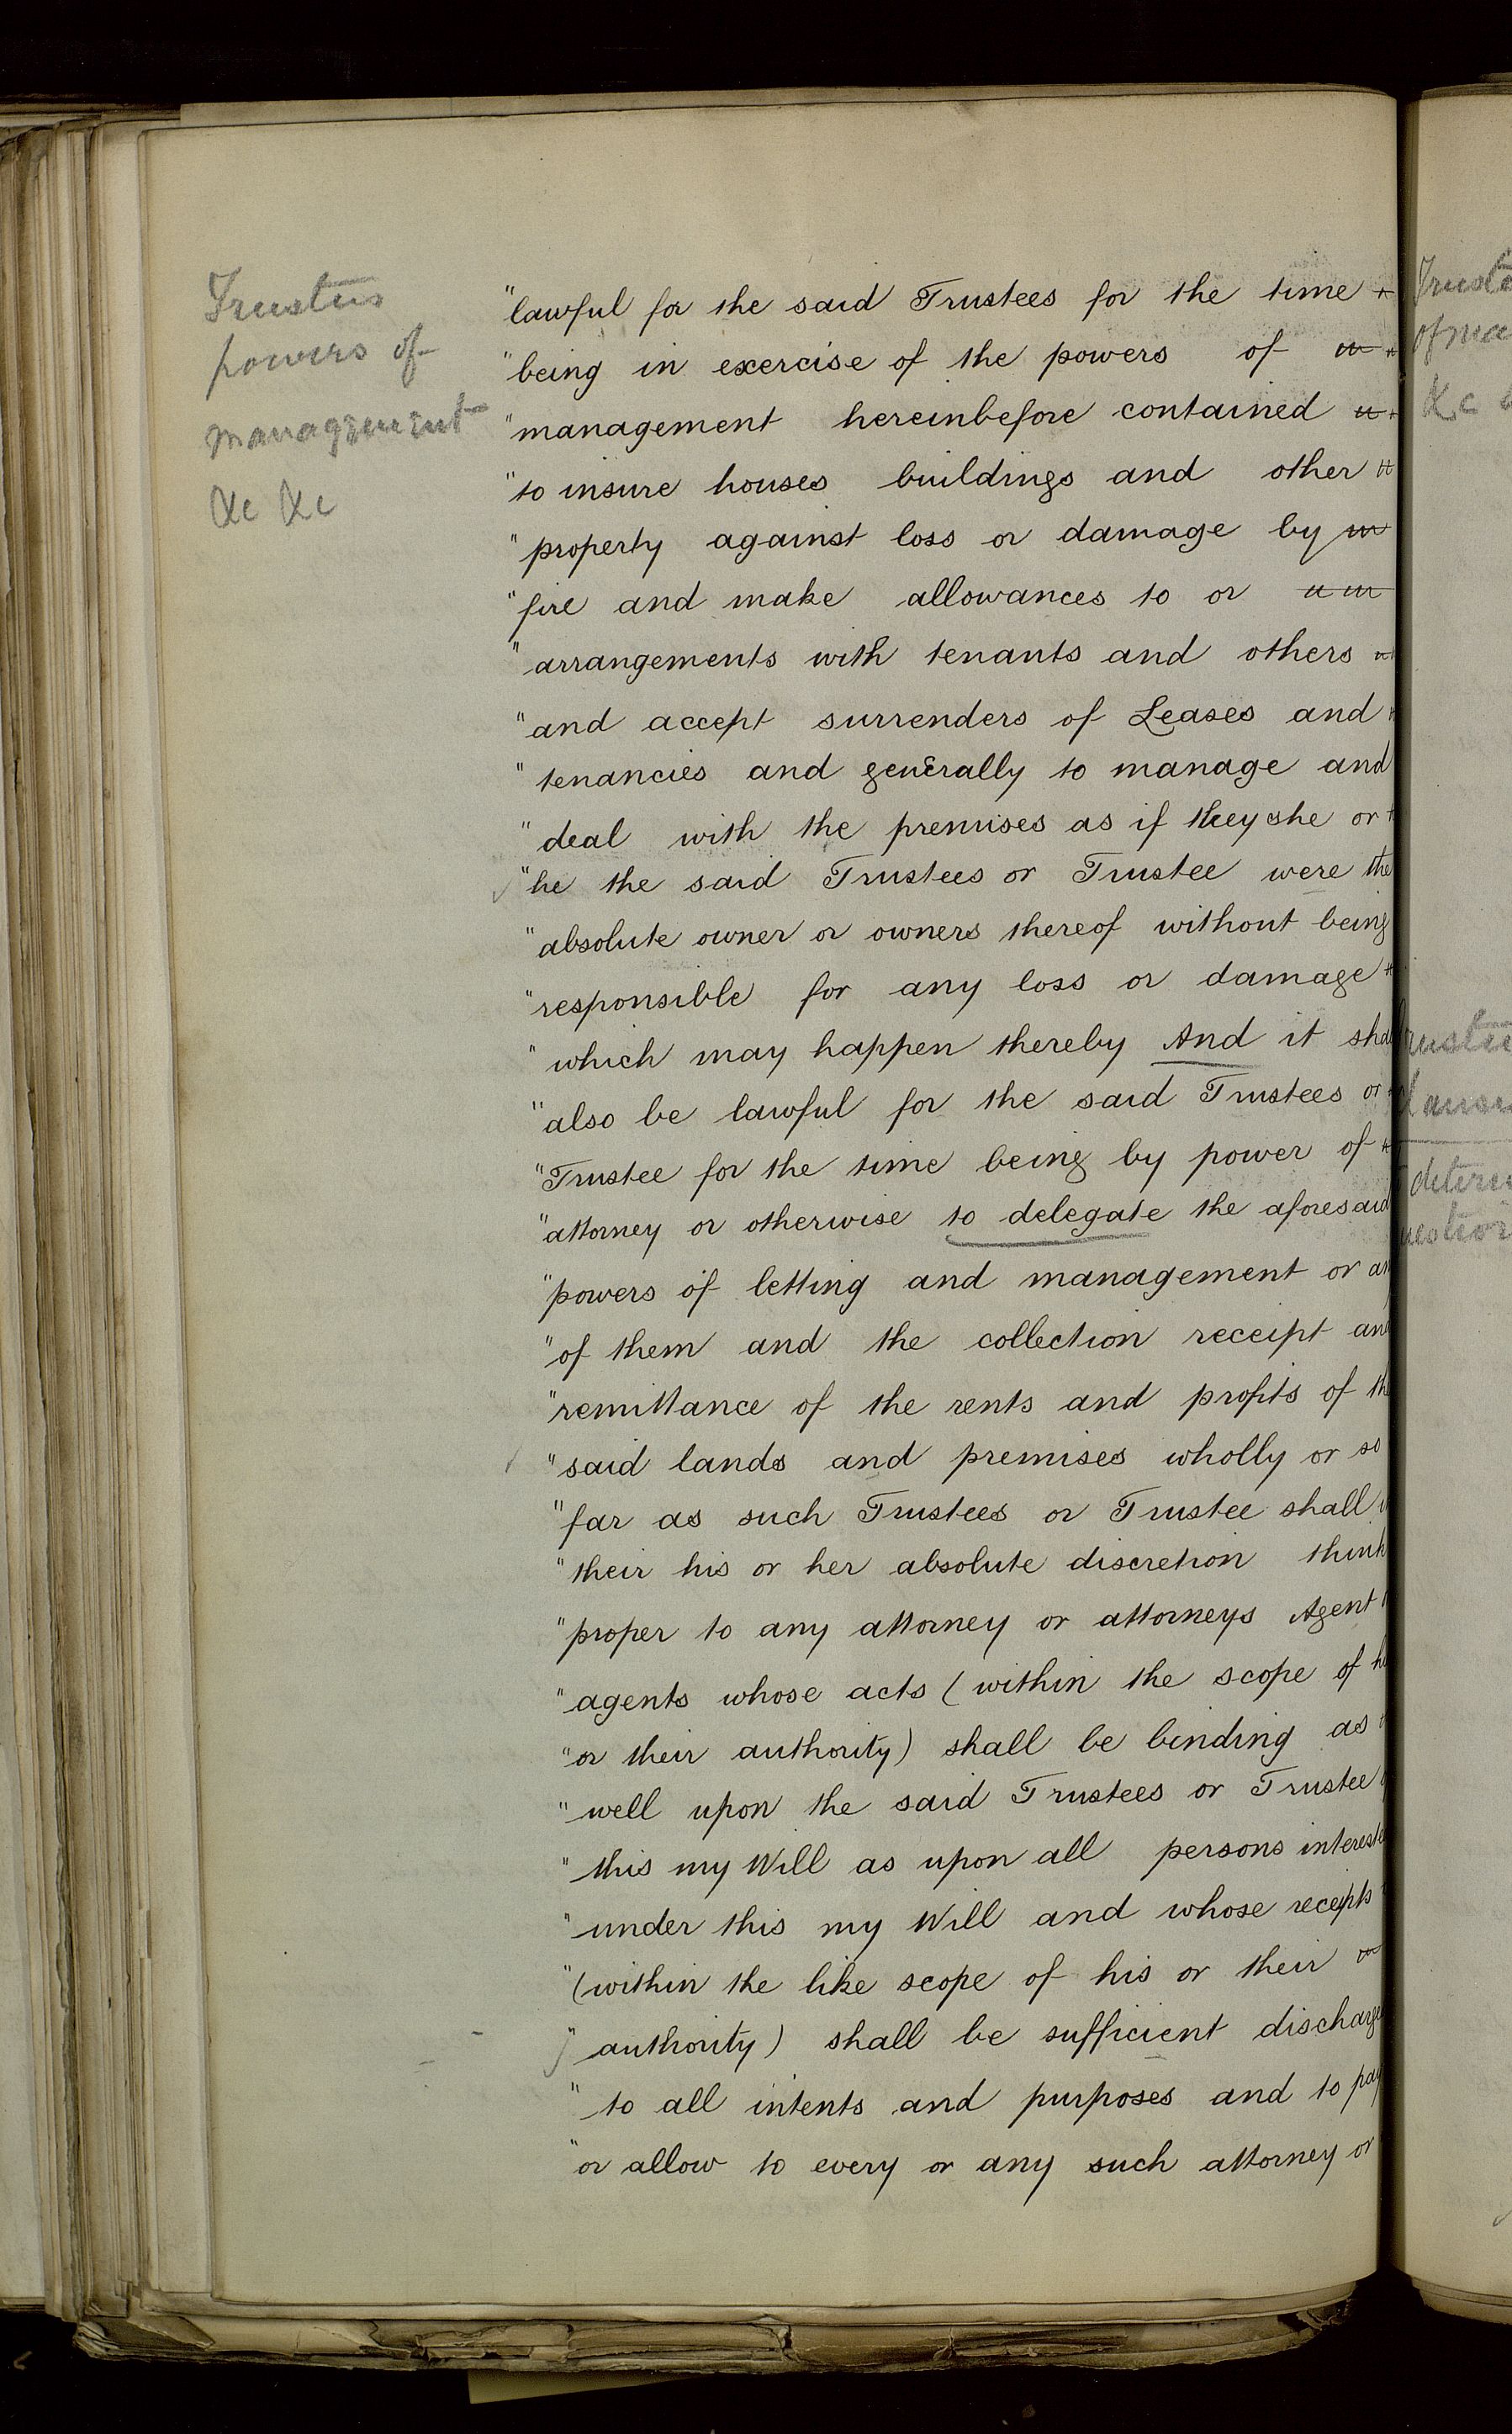 Trustees
powers of
management
&c &c
"lawful for the said Trustees for the time
"being in exercise of the powers of
"management hereinbefore contained
"to insure houses buildings and other
"property against loss or damage by
"fire and make allowances to or
"arrangements with tenants and others
"and accept surrenders of Leases and
"tenancies and generally to manage and
"deal with the premises as if they she or
"he the said Trustees or Trustee were the
"absolute owner or owners thereof without being
"responsible for any loss or damage
"which may happen thereby And it sha
"also be lawful for the said Trustees or
"Trustee for the time being by power of
"attorney or otherwise to delegate the aforesaid
"powers of letting and management or an
"of them and the collection receipt and
"remittance of the rents and profits of the
"said lands and premises wholly or so
"far as such Trustees or Trustee shall
"their his or her absolute discretion think
"proper to any attorney or attorneys Agent
"agents whose acts (within the scope of h
"or their authority) shall be binding as
"well upon the said Trustees or Trustee
"this my Will as upon all persons interested
"under this my Will and whose receipts
"(within the like scope of his or their
"authority) shall be sufficient discharge
"to all intents and purposes and to pay
"or allow to every or any such attorney or
Truste
of ma
&c